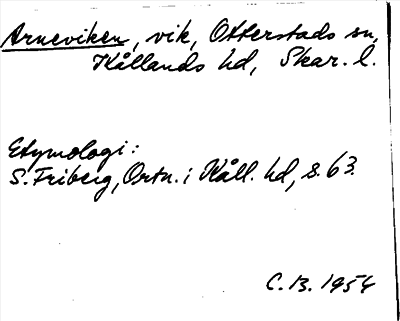 Arneviken, vik, Otterstads sn,
Kållands hd, Skar. l.
Etymologi:
S. Friberg, Ortn. i Kåll. hd, s. 63.
C. B. 1954